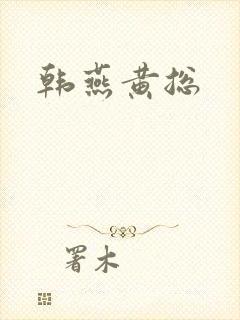 韩燕黄总
署木